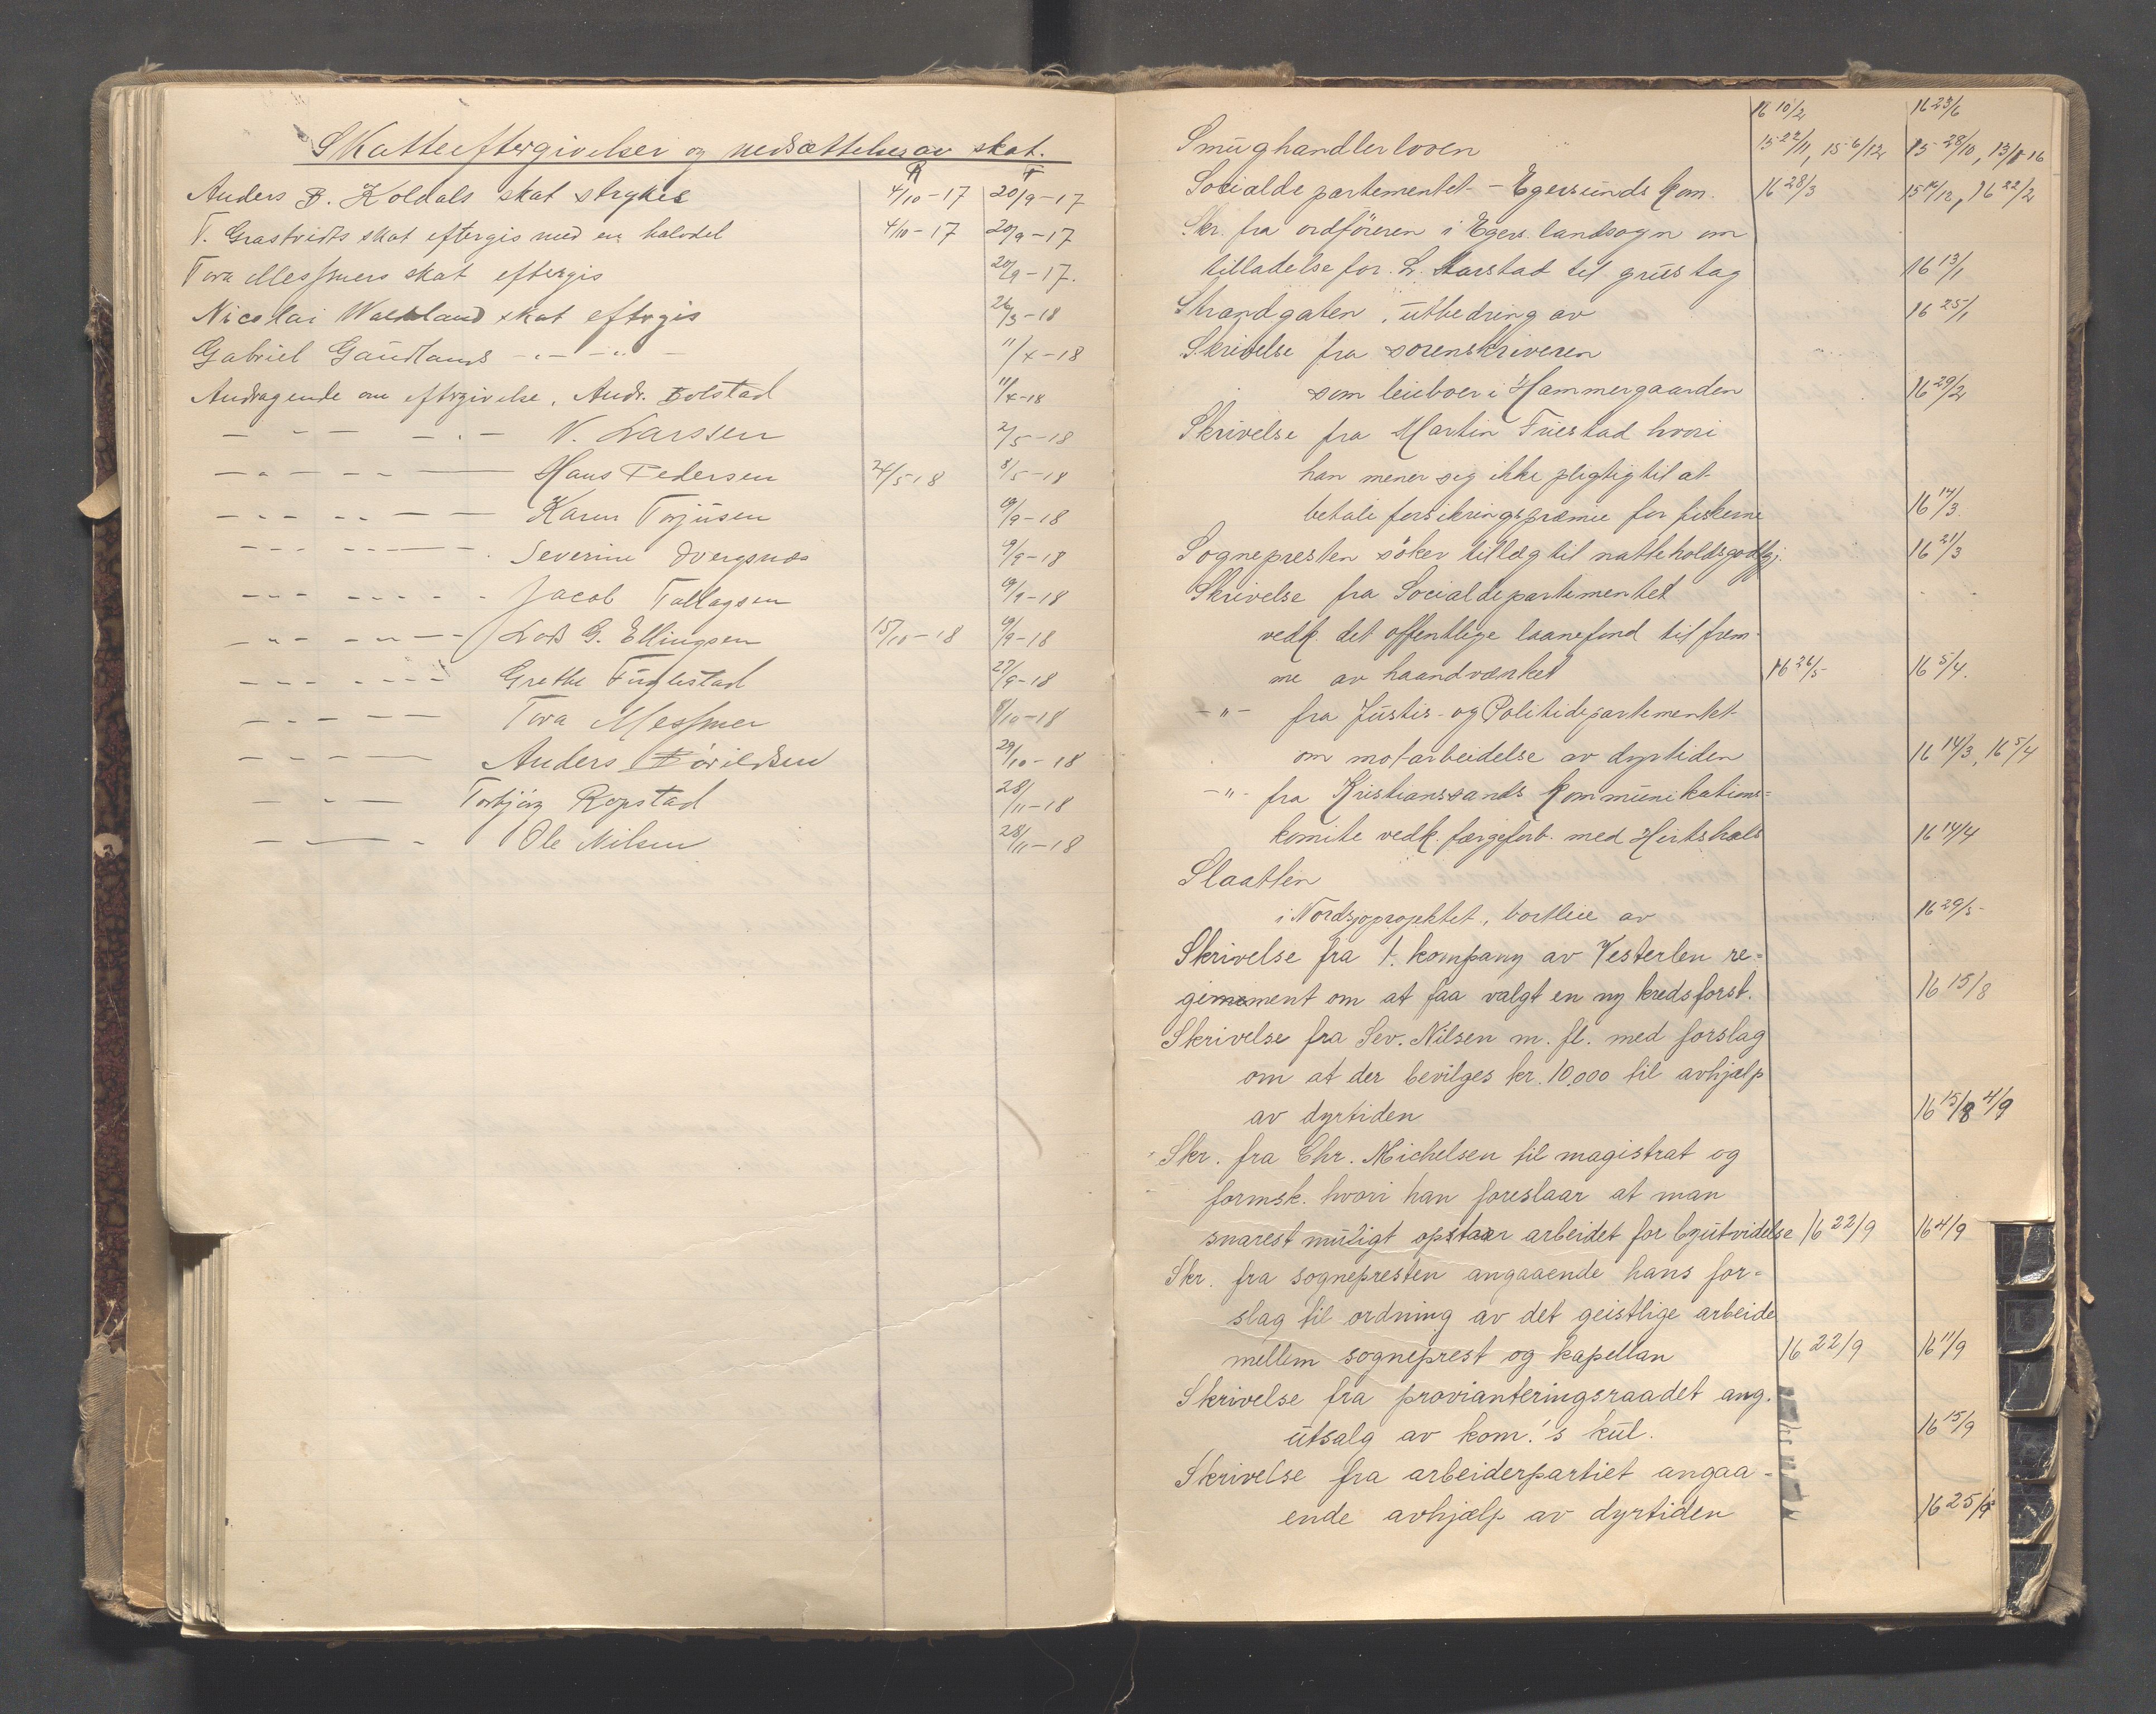 Skatteeftergivelser og nedsættelse av skat.
R F
Anders B. Koldals skat strykes 4/10-17 20/9-17
T. Grastveidts skat eftergis med en halvdel 4/10-17 20/9-17
Tora Messmers skat eftergis 20/9-17.
Nicolai Waesland skat eftergis 26/3-18
Gabriel Gaudlands -"- -"- 11/4-18
Andragende om eftergivelse, Andr. Bolstad 11/4-18
- - - - - N. Larssen 2/5-18
- - - - - Hans Pedersen 24/5-18 8/5-18
- - - - - Karen Torjusen 19/9-18
- - - - - Severine Dvergsnes 9/9-18
- - - - - Jacob Tollagsen 19/9-18
- - - - - Lods G. Ellingsen 15/10-18 19/9-18
- - - - - Grethe Fuglestad 27/9-18
- - - - - Tora Messmer 8/10-18
- - - - - Anders Tövildsen 29/10-18
- - - Torbjörg Repstad 28/11-18
- - - Ole Nilsen 28/11-18
16 10/2 16 23/6
Smughandlerloven 15 27/11, 15 6/12 15 28/10, 13/1 16
Socialdepartementet - Egersunds kom. 16 28/3 15 14/12, 16 22/2
Skr. fra ordföreren i Egers. landsogn om
tilladelse for L. Aarstad til grustag 16 13/1
Strandgaten, utbedring av 16 25/1
Skrivelse fra sorenskriveren
som leieboer i Hammergaarden 16 29/2
Skrivelse fra Martin Friestad hvori
han mener sig ikke pligtig til at
betale forsikringspræmie for fiskerne 16 14/3
Sognepresten söker tillæg til natteholdsgodtgj. 16 21/3
Skrivelse fra Socialdepartementet
vedk. det offentlige laanefond til frem-
me av haandværket 16 26/5 16 5/4.
-"- fra Justis- og Politidepartementet
om motarbeidelse av dyrtiden 16 14/3, 16 5/4
-"- fra Kristianssands kommunikations=
komite vedk. færgeforb. med Hirtshals 16 14/4
Slaatten
i Nordsjøprojektet, bortleie av 16 29/5
Skrivelse fra 1. kompany av Vesterlen re=
gimement om at faa valgt en ny kredsforst. 16 15/8
Skrivelse fra Sev. Nilsen m. fl. med forslag
om at der bevilges kr. 10,000 til avhjælp
av dyrtiden 16 15/8 4/9
Skr. fra Chr. Michelsen til magistrat og
formsk. hvori han foreslaar at man
snarest muligt opstaar arbeidet for byutvidelse 16 22/9 16 4/9
Skr. fra sognepresten angaaende hans for=
slag til ordning av det geistlige arbeide
mellem sogneprest og kapellan 16 22/9 16 11/9
Skrivelse fra provianteringsraadet ang.
utsalg av kom.'s kul. 16 15/9
Skrivelse fra arbeiderpartiet angaa-
ende avhjælp av dyrtiden 16 25/9